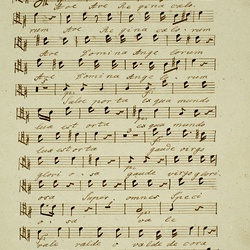 Ave Ave Re gina caelo
rum Ave Re gina caelo: rum
Ave Domina Ange lorum
Ave Domina Ange lo: rum
Salve porta ex qua mundo
lux est orta ex qua mundo
lux est orta gaude virgo
glori o: sa gaude virgo glori:
osa Super omnes speci
o: sa va le
vale valde o valde de cora